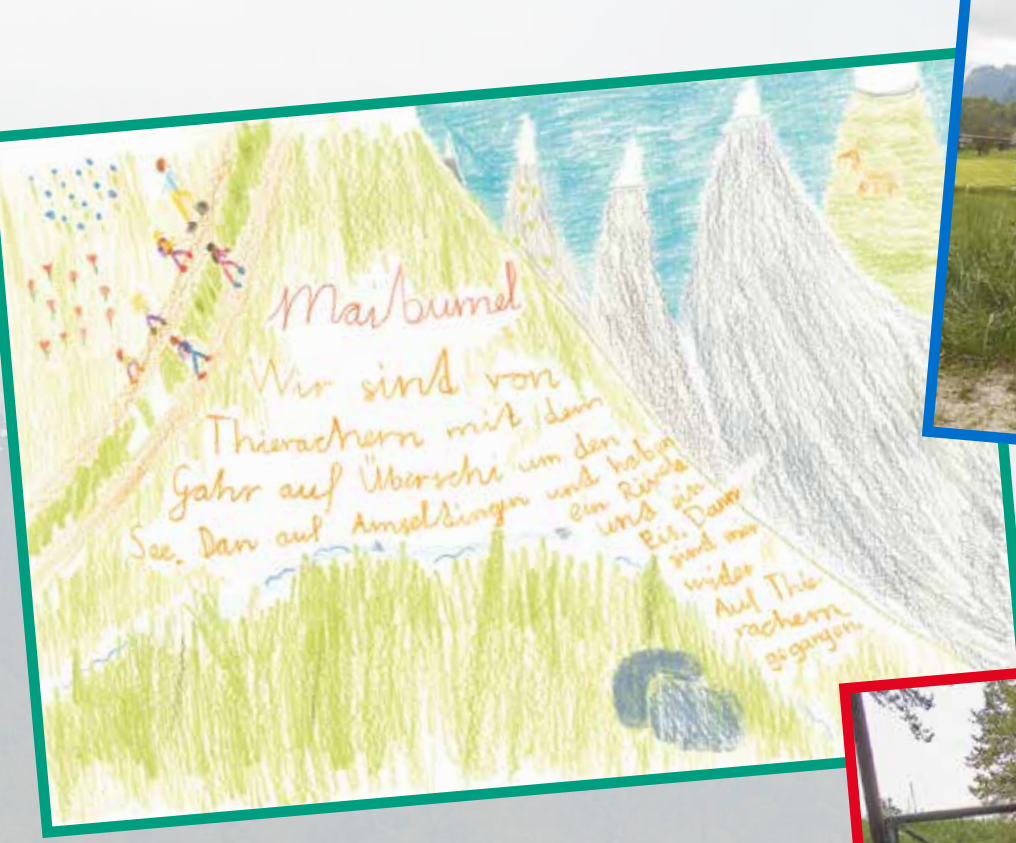 Maibumel
Wir sind von
Thierachern mit dem
Gahr auf Überschi um den
See. Dan auf Amseldingen und haben
ein Rivela
und ein
Eis. Dann
sind mir
wider
Auf Thie-
rachern
gegangen.